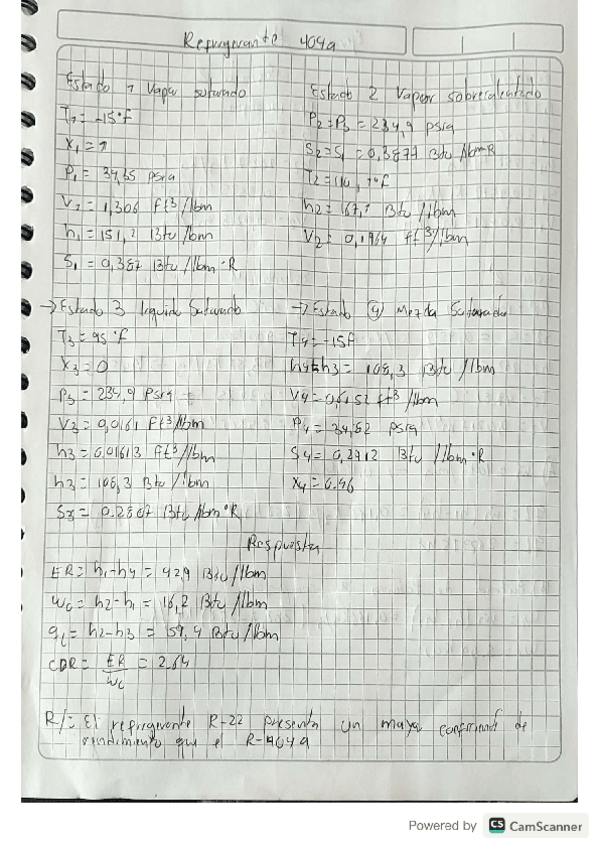 Refrigerante 404a
Estado 1 Vapor saturado
T1 = -15°F
X1 = 1
P1 = 34,35 psia
V1 = 1,306 ft³/lbm
h1 = 151,2 Btu/lbm
S1 = 0,387 Btu/lbm·R
Estado 2 Vapor sobrecalentado
P2 = P3 = 234,9 psia
S2 = S1 = 0,3877 Btu/lbm·R
T2 =
h2 = 167, Btu/lbm
V2 = 0,1964 ft³/lbm
→ Estado 3 liquido Saturado
T3 = 95°F
X3 = 0
P3 = 234,9 Psia
V3 = 0,0161 ft³/lbm
h3 = 0,01613 ft³/lbm
h3 = 108,3 Btu/lbm
S3 = 0.2807 Btu/lbm·R
→ Estado 4 Mezcla Saturada
T4 = -15F
h4 = h3 = 108,3 Btu/lbm
V4 = 0,6152 ft³/lbm
P4 = 34,82 psia
S4 = 0,2912 Btu/lbm·R
X4 = 0.46
Respuesta
ER = h1-h4 = 42,9 Btu/lbm
Wc = h2-h1 = 16,2 Btu/lbm
qc = h2-h3 = 59,4 Btu/lbm
CDR = ER/Wc = 2.64
R/= El refrigerante R-22 presenta un mayo de
rendimiento que el R-404a
Powered by CS CamScanner